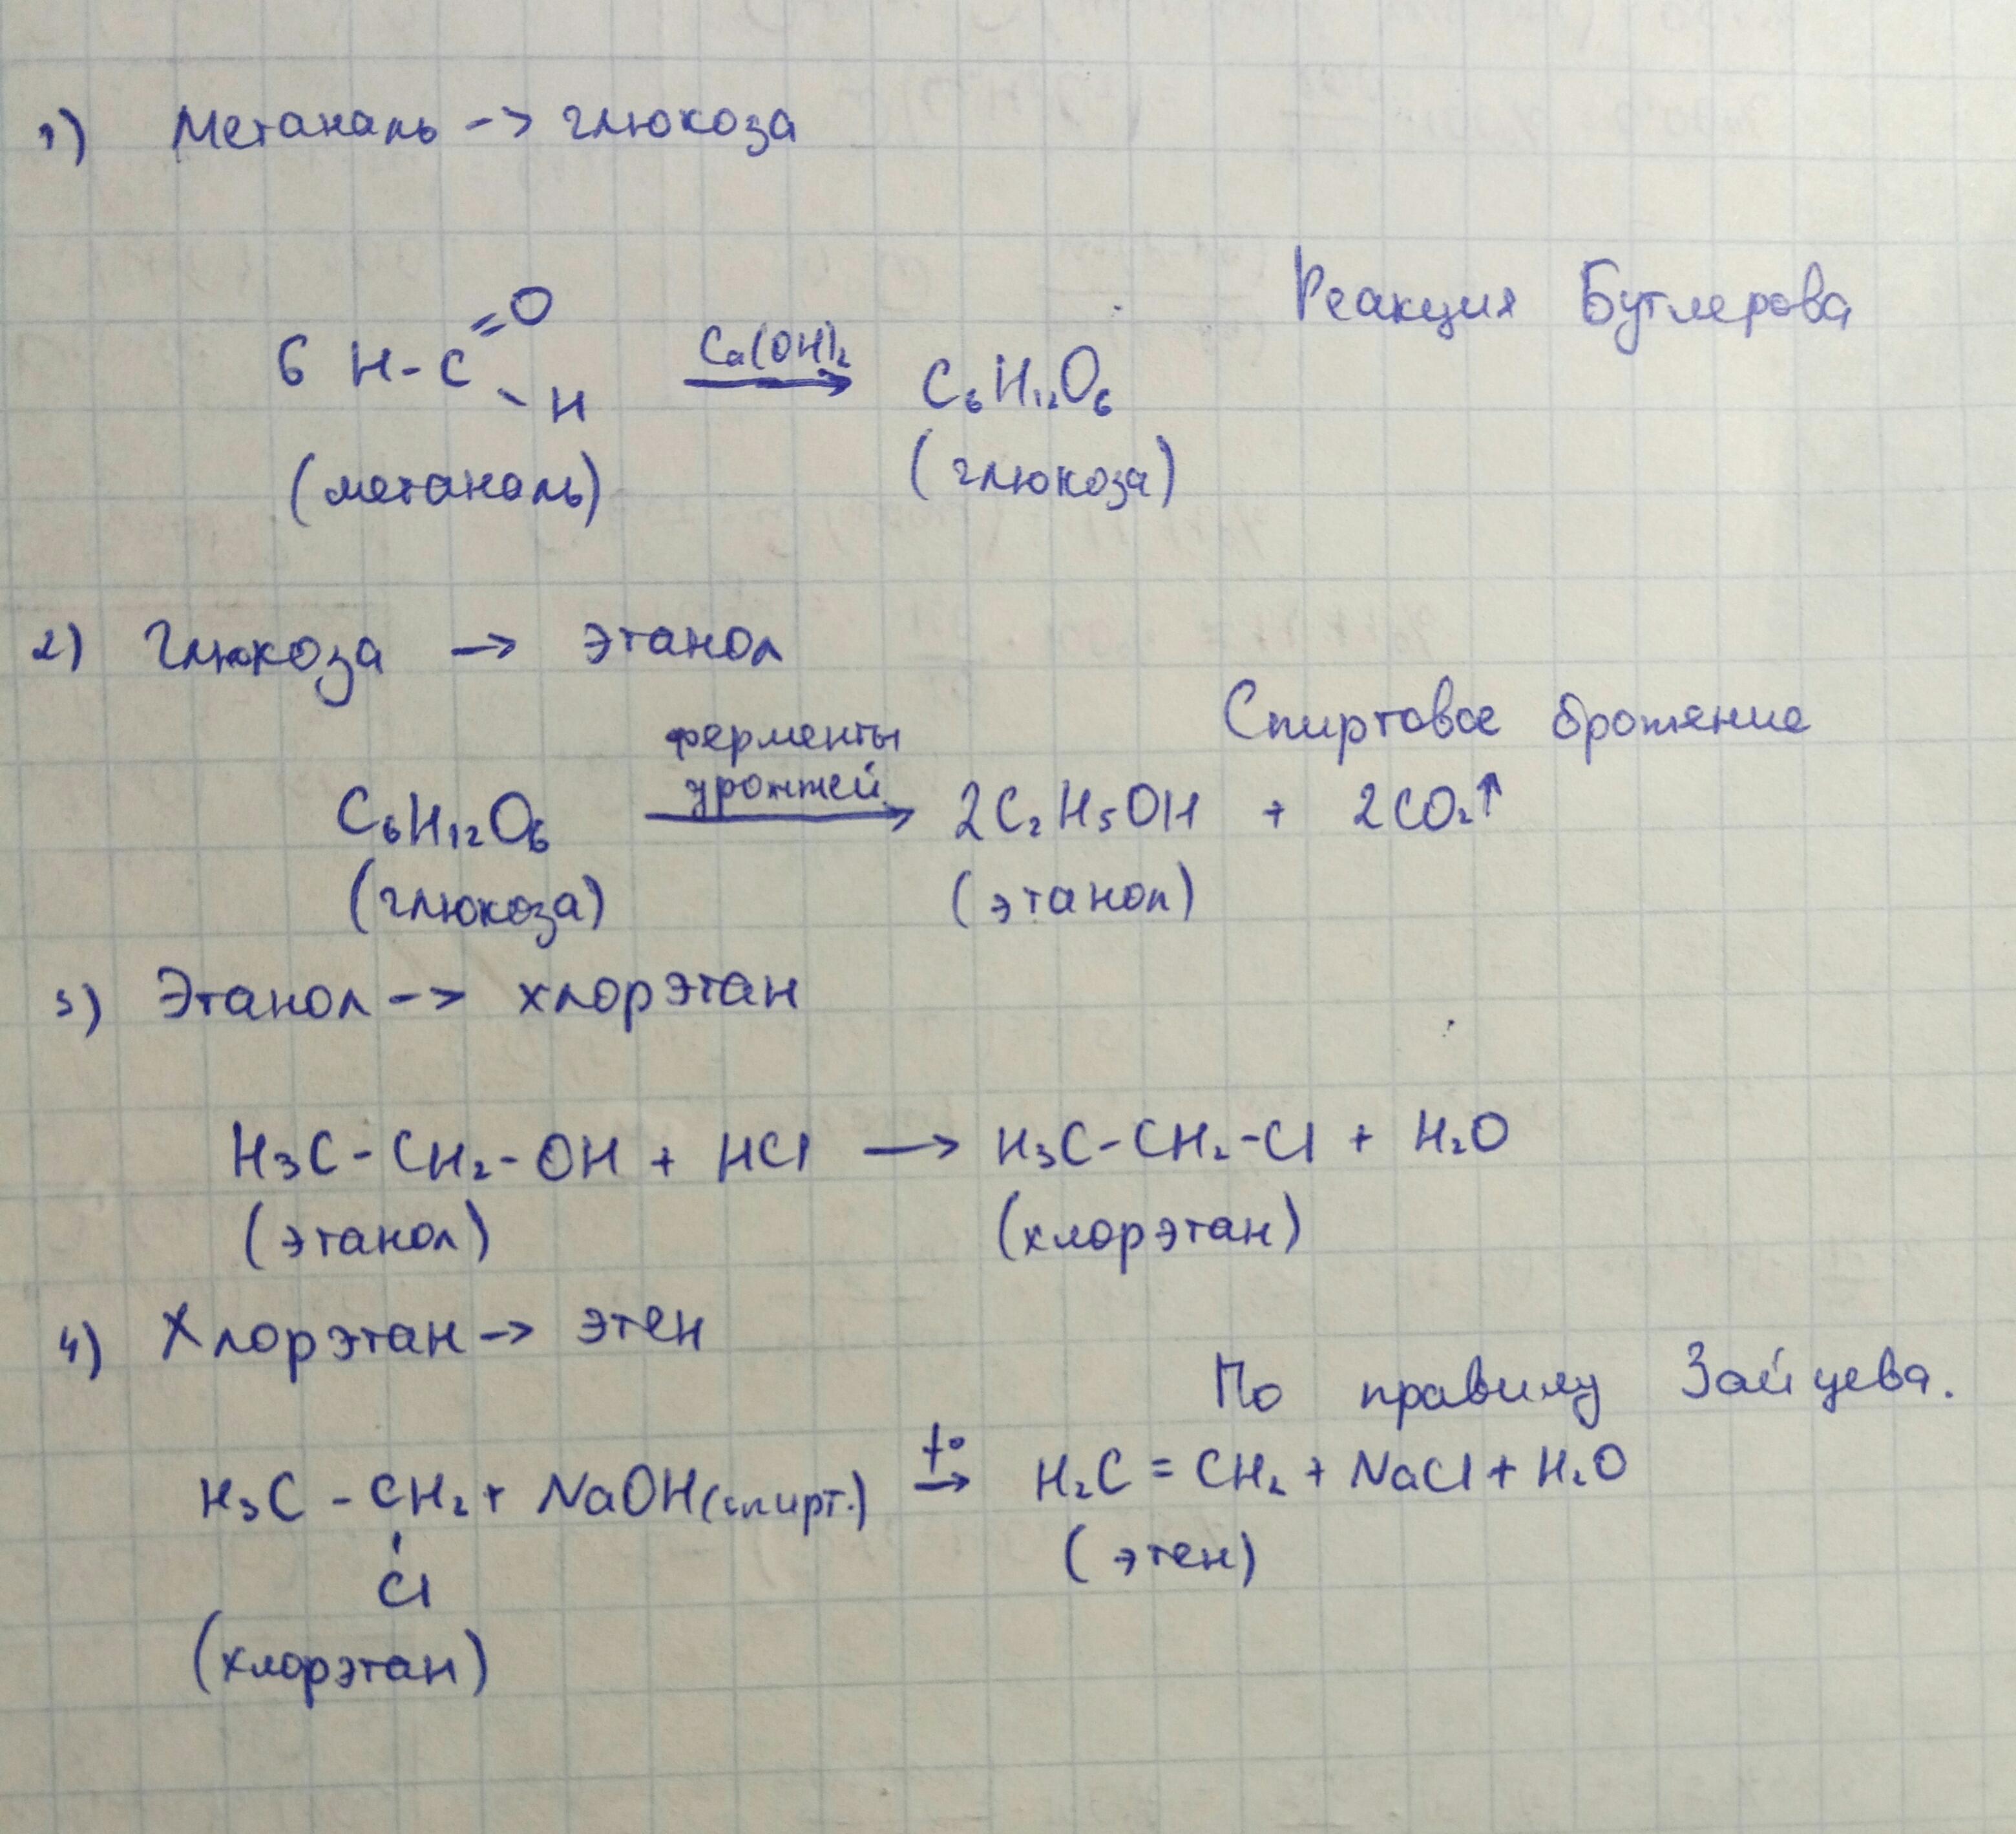 1) Метаналь -> глюкоза
Реакция Бутлерова
O
6 H-C = Ca(OH)₂ → C₆H₁₂O₆
H
(метаналь) (глюкоза)
2) Глюкоза → этанол
Спиртовое брожение
ферменты
дрожжей
C₆H₁₂O₆ → 2C₂H₅OH + 2CO₂↑
(глюкоза) (этанол)
3) Этанол -> хлорэтан
H₃C-CH₂-OH + HCl → H₃C-CH₂-Cl + H₂O
(этанол) (хлорэтан)
4) Хлорэтан -> этен
По правилу Зайцева.
t°
H₃C - CH₂ + NaOH(спирт.) → H₂C = CH₂ + NaCl + H₂O
Cl (этен)
(хлорэтан)